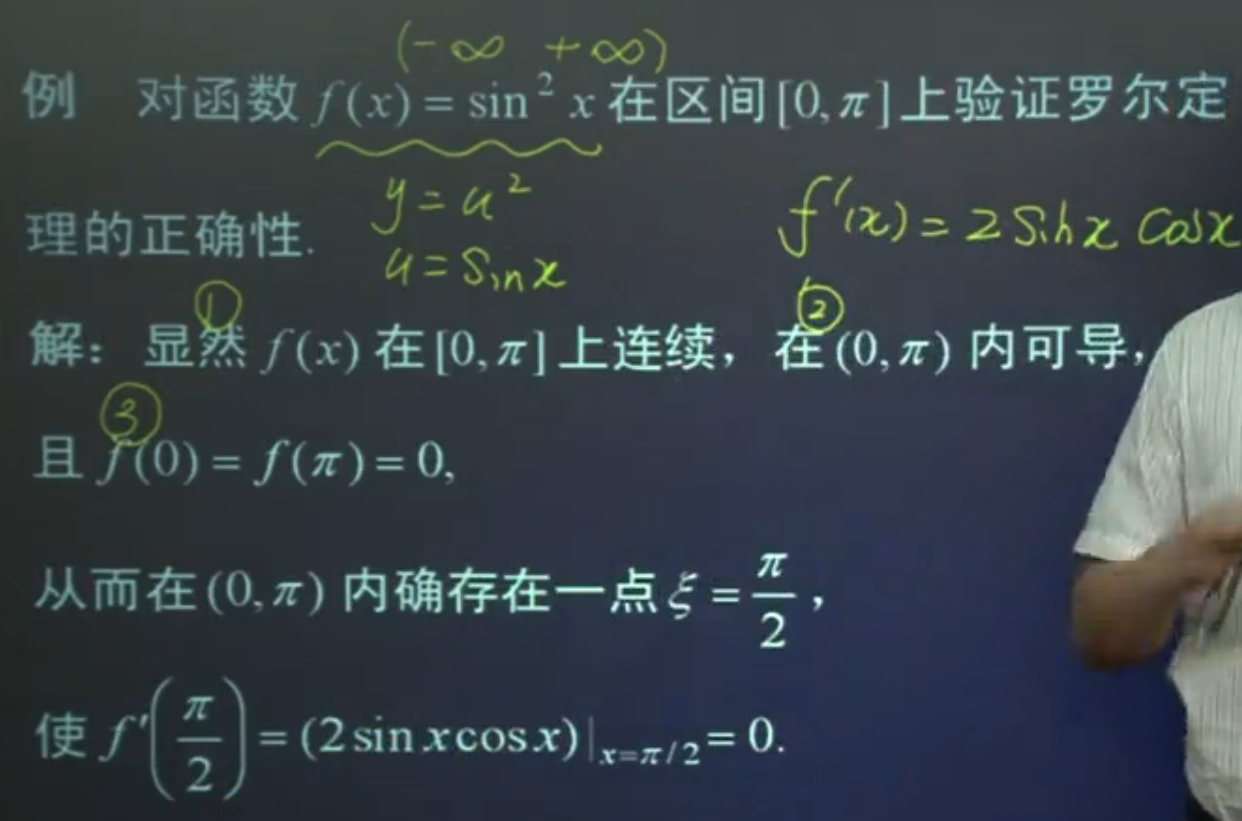 (-∞ +∞)
例 对函数 f(x) = sin² x 在区间[0,π]上验证罗尔定
理的正确性.
y = u²
u = Sin x
f'(x) = 2 Sin x Cos x
① ②
解：显然 f(x) 在[0,π]上连续，在(0,π)内可导，
③
且 f(0) = f(π) = 0,
从而在(0,π)内确存在一点 ξ = π/2，
使 f'(π/2) = (2 sin x cos x)|x=π/2 = 0.